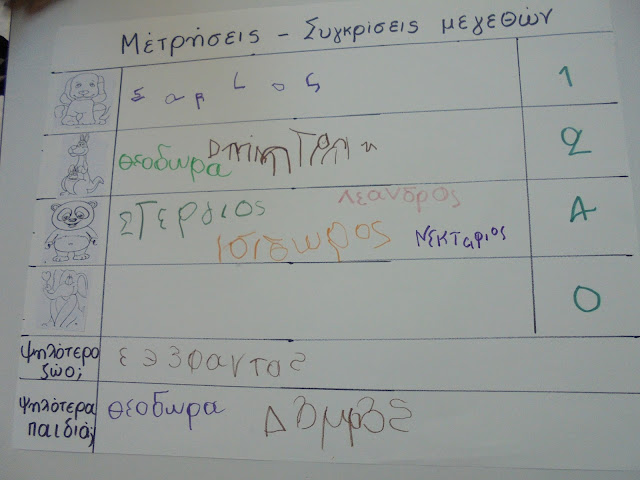 Μετρήσεις - Συγκρίσεις μεγεθών
1
θεοδωρα
2
Λεανδρος
ΣΤΕΡΓΙΟΣ
4
ΙσΙδωρος Νεκταριος
0
Ψηλότερο
ζώο;
Ψηλότερα θεοδωρα
παιδιά;